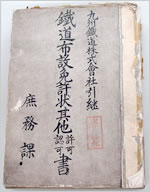 九州鐵道株式會社引繼
鐵道布設免許狀其他許可認可書
庶務課